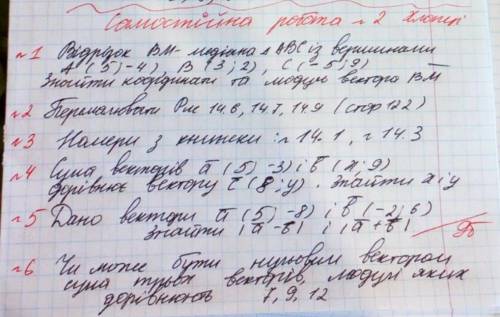 Самостійна робота №2 Хлопці
№1 Відрізок BM - медіана △ABC із вершинами
A (5;-4), B (3;2), C (-5;9)
Знайти координати та модуль вектора BM
№2 Перемалювати Рис 14.6, 14.7, 14.9 (стор 122)
№3 Номери з книжки: №14.1, №14.3
№4 Сума векторів a (5;-3) і b (x;9)
дорівнює вектору c (8;y). Знайти x і y
№5 Дано вектори a (5;-8) і b (-2;6)
Знайти |a-b| і |a+b|
№6 Чи може бути нульовим вектором
сума трьох векторів, модулі яких
дорівнюють 7, 9, 12